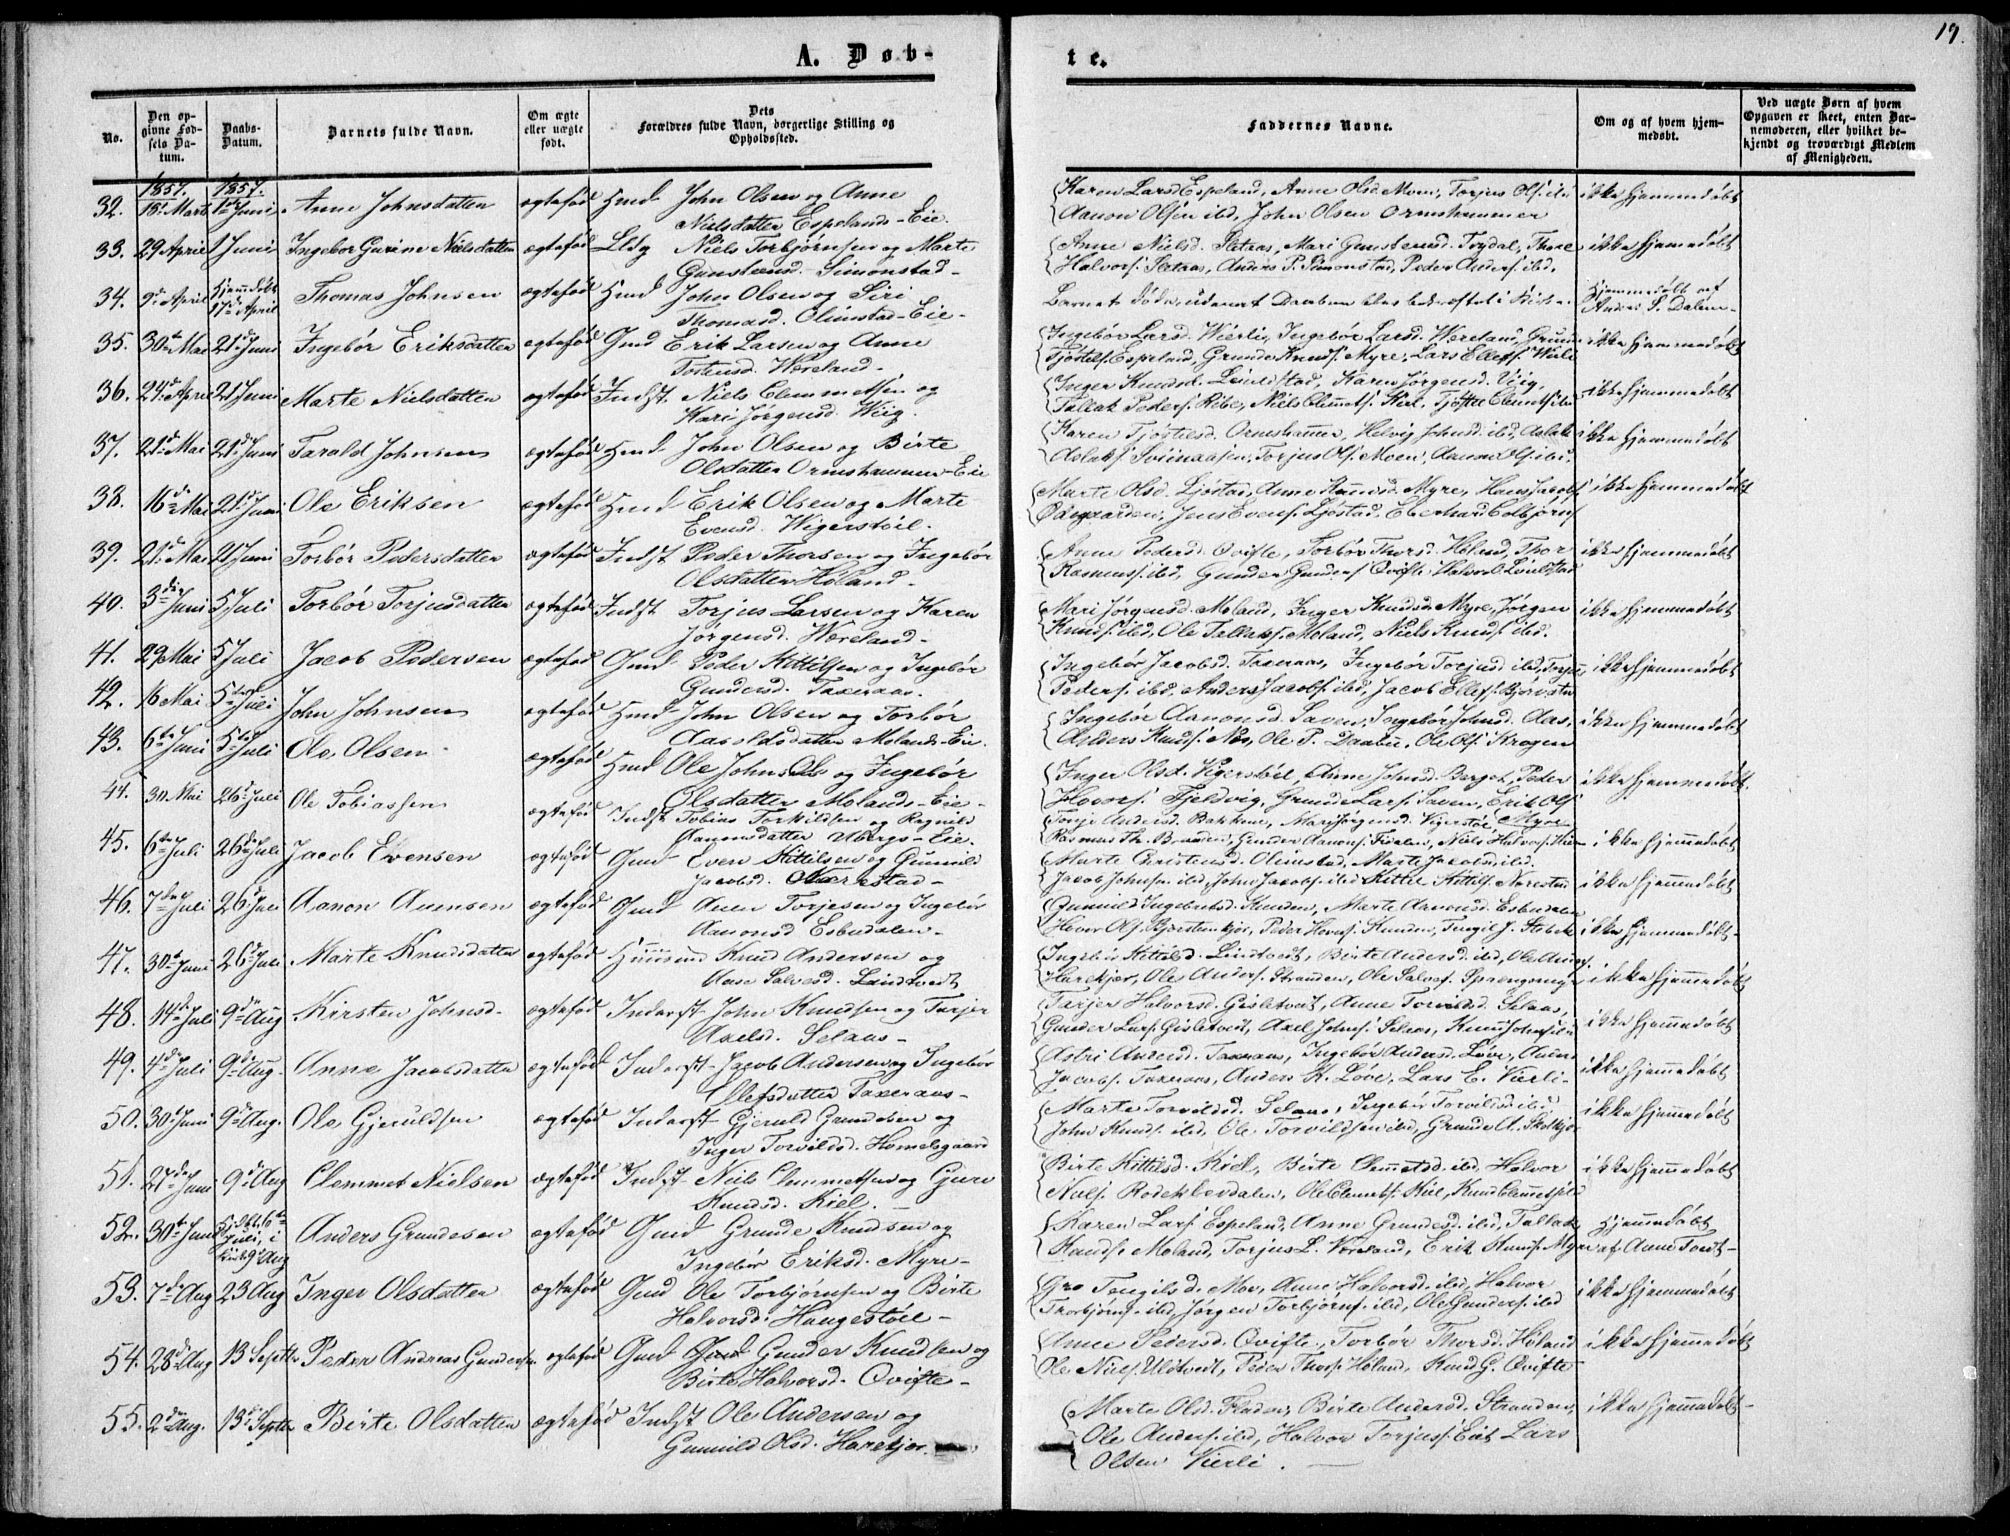 19.
A. Døb-
te.
No.
Den op-
givne Fød-
sels Da-
tum.
Daabs-
Datum.
Barnets fulde Navn.
Om ægte
eller uægte
født.
Dets
Forældres fulde Navn, borgerlige Stilling og
Opholdssted.
Faddernes Navne.
Om og af hvem hjem-
medøbt.
Ved uægte Børn af hvem
Opgaven er skeet, enten Bar-
nemoderen, eller hvilket be-
kjendt og troværdigt Medlem
af Menigheden.
1857. 1857.
32. 18. Marts 1ste Juni Anne Johnsdatter ægtefød Hmd John Olsen og Anne
Nielsdatter Espelands-Eie
Karen Larsd Espeland, Anne Olsd Moen, Torjus Ols. ibd
Aanon Olsen ibd, John Olsen Ormshammer
ikke hjemmedøbt
33. 29 April 1 Juni Ingebor Gurine Nielsdatter ægtefød Niels Torbjørnsen og Marte
Gunstensd. Simonstad-
Anne Nielsd. Mari Gunstensd. Thore
Halvors. Anders P. Simonstad, Peder Anders. ibd.
ikke hjemmedøbt
34. 9de April Hjemdøbt
17de April Thomas Johnsen ægtefød Hmd John Olsen og Siri
Thomasd. Olimstad-Eie-
Barnet døde, udenat Daaben blev bekræftet i Kirken
Hjemmedøbt af
Anders S. Dalen-
35. 30te Mai 21de Juni Ingebør Eriksdatter ægtefød Gmd Erik Larsen og Anne
Tostensd. Væreland-
Ingebør Larsd. Vierli, Ingebør Larsd. Væreland, Grunde
Tjøstels. Espeland, Grunde Knuds. Myre, Lars Ellefs. Vierli
ikke hjemmedøbt
36. 24de April 21 Juni Marte Nielsdatter ægtefød Indst. Niels Clemmetsen og
Kari Jørgensd. Viig.
Inger Knudsd. Karen Jørgensd. Viig,
Tallak Peders. Ribe, Niels Clemets. Kiel, Tjøstel Clemets. ibd
ikke hjemmedøbt
37. 21de Mai 21de Juni Tarald Johnsen ægtefød Hmd John Olsen og Birte
Olsdatter Ormshammer-Eie
Karen Tjøstelsd. Ormshammer, Helvig Johnsd. ibd, Aslak
Aslaks. Torjus Ols. Moen, Aanon Ols. ibd.
ikke hjemmedøbt
38. 16de Mai 21de Juni Ole Eriksen ægtefød Hmd Erik Olsen og Marte
Evensd. Vigerstøl.
Marte Olsd. Ljøstad, Anne Knudsd. Myre, Hans Jacobs.
Ødegaarden, Jens Evens. Ljøstad,
ikke hjemmedøbt
39. 21de Mai 21 Juni Torbør Pedersdatter ægtefød Indst Peder Thorsen og Ingebør
Olsdatter Høland-
Anne Pedersd. Qvifte, Torbør Thorsd. Høland, Thor
Rasmuss. ibd, Gunder Gunders. Qvifte, Halvor
ikke hjemmedøbt
40. 3die Juni 5 Juli Torbør Torjusdatter ægtefød Indst Torjus Larsen og Karen
Jørgensd. Væreland-
Mari Jørgensd. Moland, Inger Knudsd. Myre, Jørgen
Knuds. ibd, Ole Tallaks. Moland, Niels Knuds. ibd.
ikke hjemmedøbt
41. 29 Mai 5 Juli Jacob Pedersen ægtefød Gmd Peder Kittilsen og Ingebør
Gundersd. Taxeraas.
Ingebør Jacobsd. Taxeraas, Ingebør Torjusd. ibd, Torjus
Peders. ibd, Anders Jacobs. ibd, Jacob Ellefs.
ikke hjemmedøbt
42. 16 Mai 5te Juli John Johnsen ægtefød Hmd John Olsen og Torbør
Aasoldsdatter Molands-Eie.
Ingebør Aanonsd. Saven, Ingebør Johnsd. Aas,
Anders Knuds. Ole P. Ole Ols. Krogen
ikke hjemmedøbt
43. 6te Juni 5te Juli Ole Olsen ægtefød Hmd Ole Johnsen og Ingebør
Olsdatter Molands-Eie-
Inger Olsd. Vigerstøl, Anne Johnsd. Berget, Peder
Hovors. Fjeldvig, Grunde Lars. Saven, Erik Ols.
Myre
ikke hjemmedøbt.
44. 30 Mai 26de Juli Ole Tobiassen ægtefød Indst Tobias Torkildsen og Ragnild
Aanonsdatter Ubergs-Eie.
Tonje Andersd. Bakkene, Mari Jørgensd. Vigerstøl,
Rasmus Th. Gunder Aanons. Niels Halvors.
ikke hjemmedøbt
45. 6te Juli 26de Juli Jacob Evensen ægtefød Gmd Even Kittilsen og Gunnild
Jacobsd. Nærestad-
Marte Christensd. Olimstad, Marte Jacobsd. ibd.
Jacob Johnsen ibd, John Jacobs. ibd Kittel Kittels. Nærestad
ikke hjemmedøbt
46. 7de Juli 26de Juli Aanon Auensen ægtefød Gmd Auen Torjesen og Ingebør
Aanonsd Esbudalen-
Gunnild Ingebretsd. Marte Aanonsd. Esbudalen
Hover Ols. Peder Hovers. Tengel J.
ikke hjemmedøbt-
47. 30te Juni 26de Juli Marte Knudsdatter ægtefød Huusmd Knud Andersen og
Aase Salvesd. Lindtvedt
Ingebør Kittilsd. Lindtvedt, Birte Andersd. ibd, Ole Anders.
Harekjør, Ole Anders. Stranden, Ole Salves.
ikke hjemmedøbt
48. 14de Juli 9de Aug Kirsten Johnsd- ægtefød Inderst John Knudsen og Tarjer
Axelsd. Selaas-
Tarjer Halvorsd. Gisletvedt, Anne Torvildsd. Selaas,
Gunder Lars. Gisletvedt, Axel Johns. Selaas, Knud Johns. ibd
ikke hjemmedøbt
49. 4de Juli 9de Aug. Anne Jacobsdatter ægtefød Inderst- Jacob Andersen og Ingebør
Ellefsdatter Taxeraas-
Astri Auensd. Taxeraas, Ingebør Andersd. Løve, Auen
Jacobs. Taxeraas, Anders K. Løve, Lars E. Vierli-
ikke hjemmedøbt
50. 30te Juni 9de Aug. Ole Gjeruldsen ægtefød Inderst Gjeruld Grundesen og
Inger Torvildsd. Homelsgaard
Marte Torvildsd. Selaas, Ingebør Torvildsd. ibd
John Knuds. ibd, Ole Torvildsen ibd, Grunde A.
ikke hjemmedøbt
51. 27de Juni 9de Aug Clemmet Nielsen ægtefød Indst Niels Clemmetsen og Guro
Knudsd. Kiel.
Birte Kittilsd. Kiel, Birte Clemetsd. ibd, Halvor
Niels. Ole Clemets. Kiel, Knud Clemets. ibd
ikke hjemmedøbt
52. 30te Juni Hjdbt. 10de
Juli, i
Kirke 9de Aug Anders Grundesen ægtefød Gmd Grunde Knudsen og
Ingebør Eriksd. Myre-
Karen Lars. Espeland, Anne Grundesd. ibd, Tallak
Knuds. Moland, Torjus L. Væreland, Erik Knuds. Myre
Hjemmedøbt
af Anne Tvedt-
53. 7de Aug 23 Aug Inger Olsdatter ægtefød Gmd Ole Torbjørnsen og Birte
Halvorsd. Haugestøl-
Gro Tengilsd. Moe, Anne Halvorsd. ibd, Halvor
Thorbjørns. ibd, Jørgen Torbjørns. ibd, Ole Gunders. ibd
ikke hjemmedøbt
54. 28de Aug 13 Septbr Peder Andreas Gundersen ægtefød Gmd Gmd Gunder Knudsen og
Birte Halvorsd. Qvifte-
Anne Pedersd. Qvifte, Torbør Thorsd. Høland
Ole Niels. Peder Thors. Høland, Knud G. Qvifte
ikke hjemmedøbt
55. 2den Aug. 13de Septbr Birte Olsdatter ægtefød Indst Ole Andersen og
Gunnild Olsd. Harekjør.
Marte Olsd. Birte Andersd. Stranden,
Ole Anders. ibd, Halvor Torjus. Lars
Olsen Vierli.
ikke hjemmedøbt-